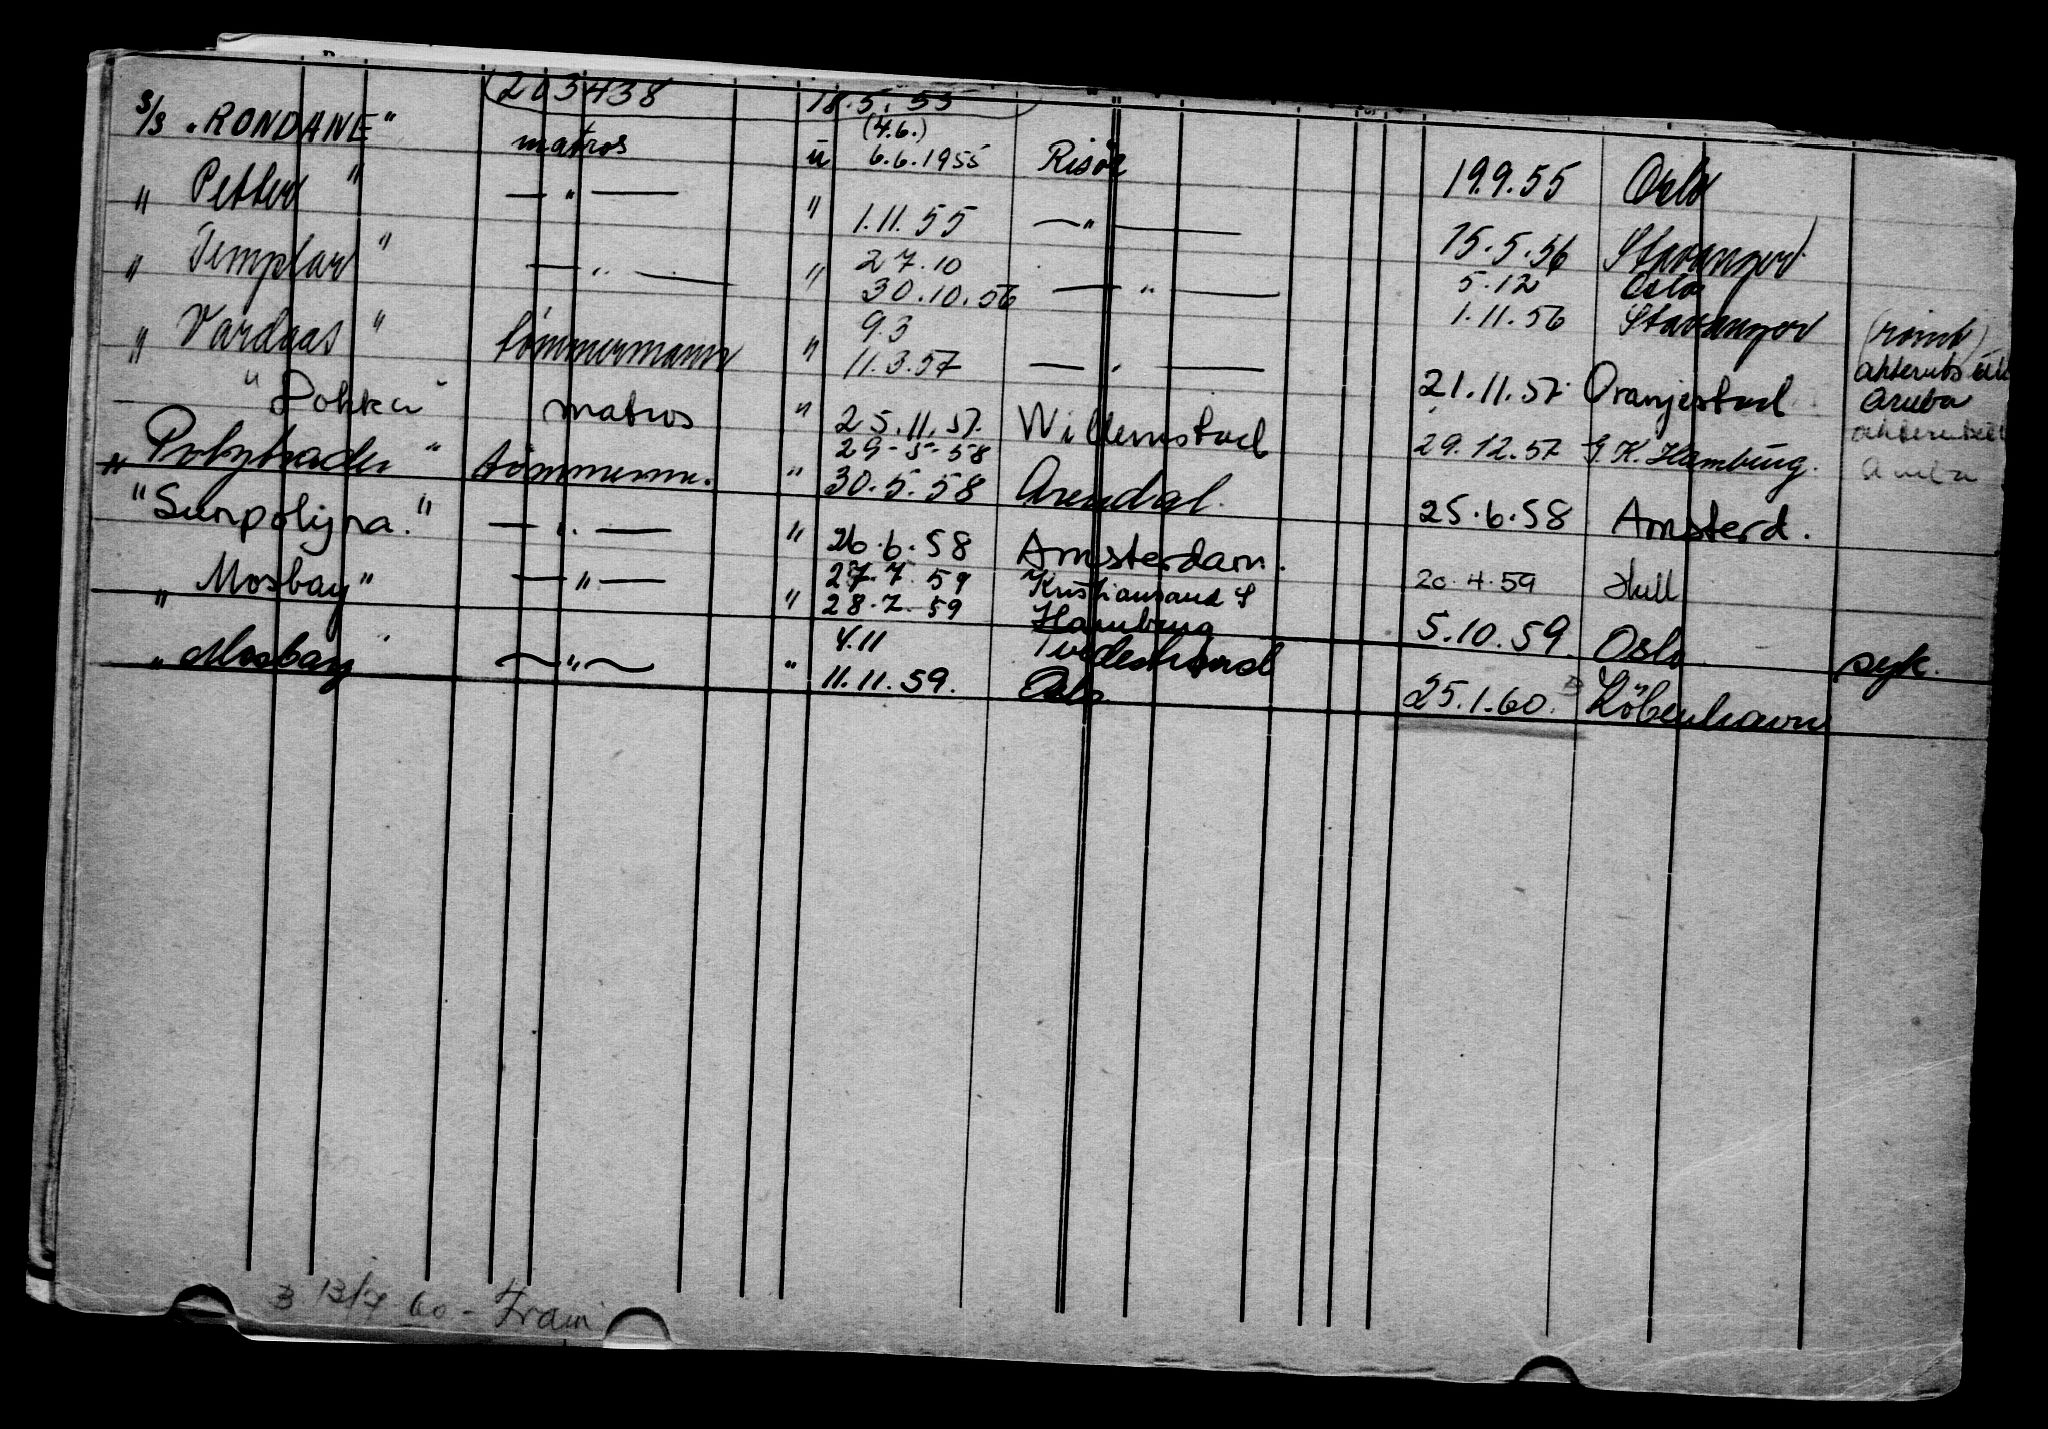 203438 18.5.55
S/S "RONDANE" matros u (4.6.) 6.6.1955 Risör 19.9.55 Oslo
" Petter " — " — " 1.11.55 — " — 15.5.56 Stavanger
" Templar " — " — " 27.10 30.10.56 — " — 5.12 Oslo 1.11.56 Stavanger (rømt)
" Vardaas " tømmermann " 9.3 11.3.57 — " — 21.11.57 Oranjestad Aruba
" " matros " 25.11.57. Willemstad 29.12.57 Hamburg.
" Polytrader " tømmerm. " 29-5-58 30.5.58 Arendal. 25.6.58 Amsterd.
"Sunpolyna." — " — " 26.6.58 Amsterdam. 20.4.59 Hull
" Mosbay" — " — " 27.7.59 Kristiansand S 28.7.59 Hamburg 5.10.59. Oslo syk.
" Mosbay — " — " 4.11 Tvedestrand 11.11.59. Oslo 25.1.60. Köbenhavn
B 13/7 60 - Fram